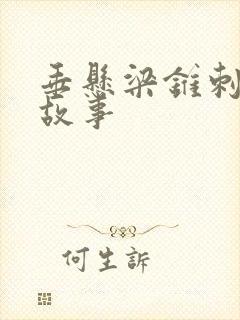 垂懸梁錐刺
故事
何生訴